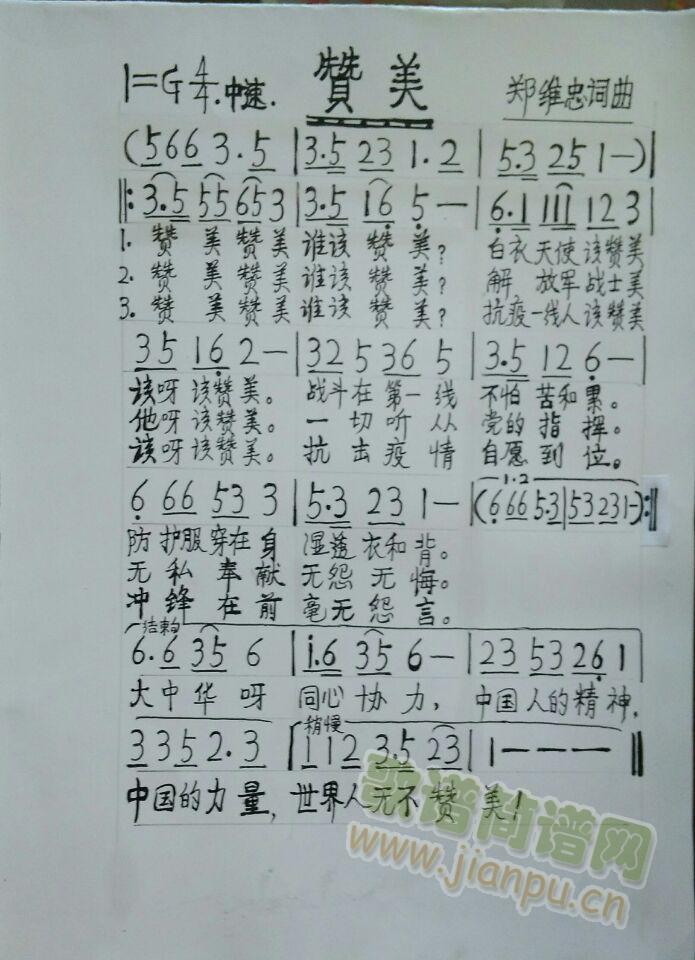 1=G 4/4 .中速. 賛美 郑维忠词曲
(566 3.5 |3.5 23 1.2 |5.3 25 1—)|
‖:3.5 55 653 |3.5 16 5— |6.1 111 12 3
1. 赞 美 赞美 谁该 赞 美? 白衣天使该赞美
2. 赞 美 赞美 谁该 赞 美? 解 放军战士美
3. 赞 美 赞美 谁该 赞 美? 抗疫一线人该赞美
35 16 2— |32 5 36 5 |3.5 12 6—|
该呀该赞美。 战斗在第一线 不怕苦和累。
他呀该赞美。 一切听从 党的指挥。
该呀该赞美。 抗击疫情 自愿到位。
1.2
6 66 53 3 |5.3 23 1— |(6 66 53.|53 231-):‖
防护服穿在身 湿透衣和背。
无私奉献 无怨无悔。
冲锋在前 毫无怨言。
结束句
6.6 35 6 |i.6 35 6— |23 53 26 1
大中华呀 同心协力, 中国人的精神,
稍慢
3 35 2.3 |1 12 3.5 23 |1———‖
中国的力量, 世界人无不赞美!
歌谱简谱网
www.jianpu.cn